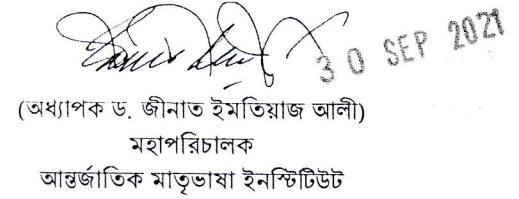 30 SEP 2021
(অধ্যাপক ড. জীনাত ইমতিয়াজ আলী)
মহাপরিচালক
আন্তর্জাতিক মাতৃভাষা ইনস্টিটিউট